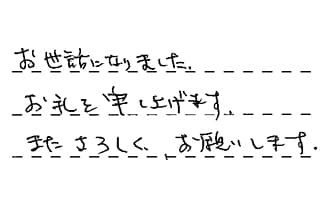 お世話になりました.
お礼を申し上げます.
また よろしく、お願いします.